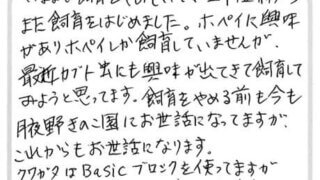 また飼育をはじめました。ホペイに興味
がありホペイしか飼育していませんが、
最近カブト虫にも興味が出てきて飼育して
みようと思ってます。飼育をやめる前も今も
月夜野きのこ園にお世話になってますが、
これからもお世話になります。
クワガタはBasicブロックを使ってますが